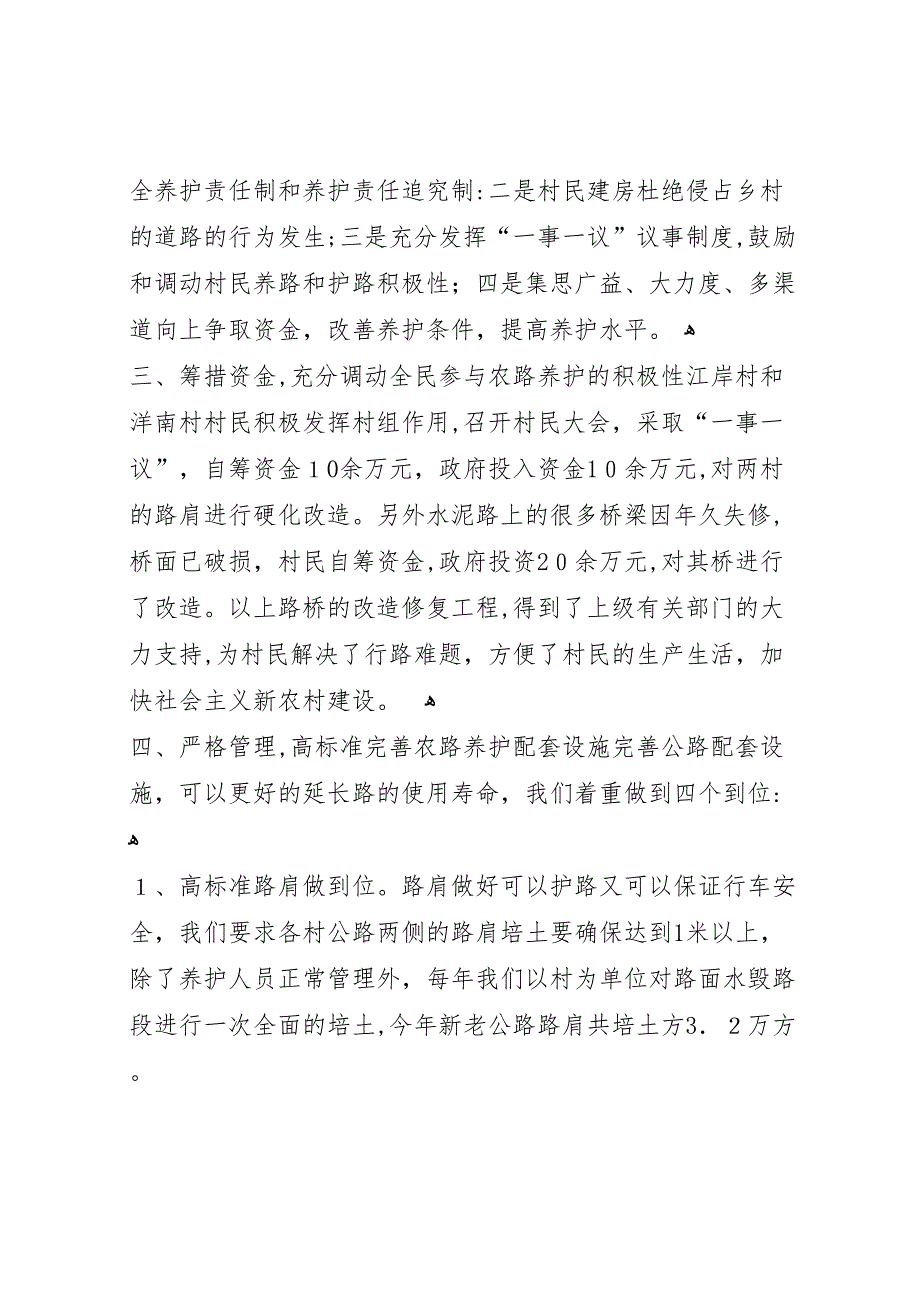 全养护责任制和养护责任追究制:二是村民建房杜绝侵占乡村
的道路的行为发生;三是充分发挥“一事一议”议事制度,鼓励
和调动村民养路和护路积极性；四是集思广益、大力度、多渠
道向上争取资金，改善养护条件，提高养护水平。 ﻫ
三、筹措资金,充分调动全民参与农路养护的积极性江岸村和
洋南村村民积极发挥村组作用,召开村民大会，采取“一事一
议”，自筹资金１0余万元，政府投入资金1０余万元,对两村
的路肩进行硬化改造。另外水泥路上的很多桥梁因年久失修,
桥面已破损，村民自筹资金,政府投资2０余万元,对其桥进行
了改造。以上路桥的改造修复工程,得到了上级有关部门的大
力支持,为村民解决了行路难题，方便了村民的生产生活，加
快社会主义新农村建设。 ﻫ
四、严格管理,高标准完善农路养护配套设施完善公路配套设
施，可以更好的延长路的使用寿命，我们着重做到四个到位:
ﻫ
１、高标准路肩做到位。路肩做好可以护路又可以保证行车安
全，我们要求各村公路两侧的路肩培土要确保达到1米以上，
除了养护人员正常管理外，每年我们以村为单位对路面水毁路
段进行一次全面的培土,今年新老公路路肩共培土方3．２万方
。